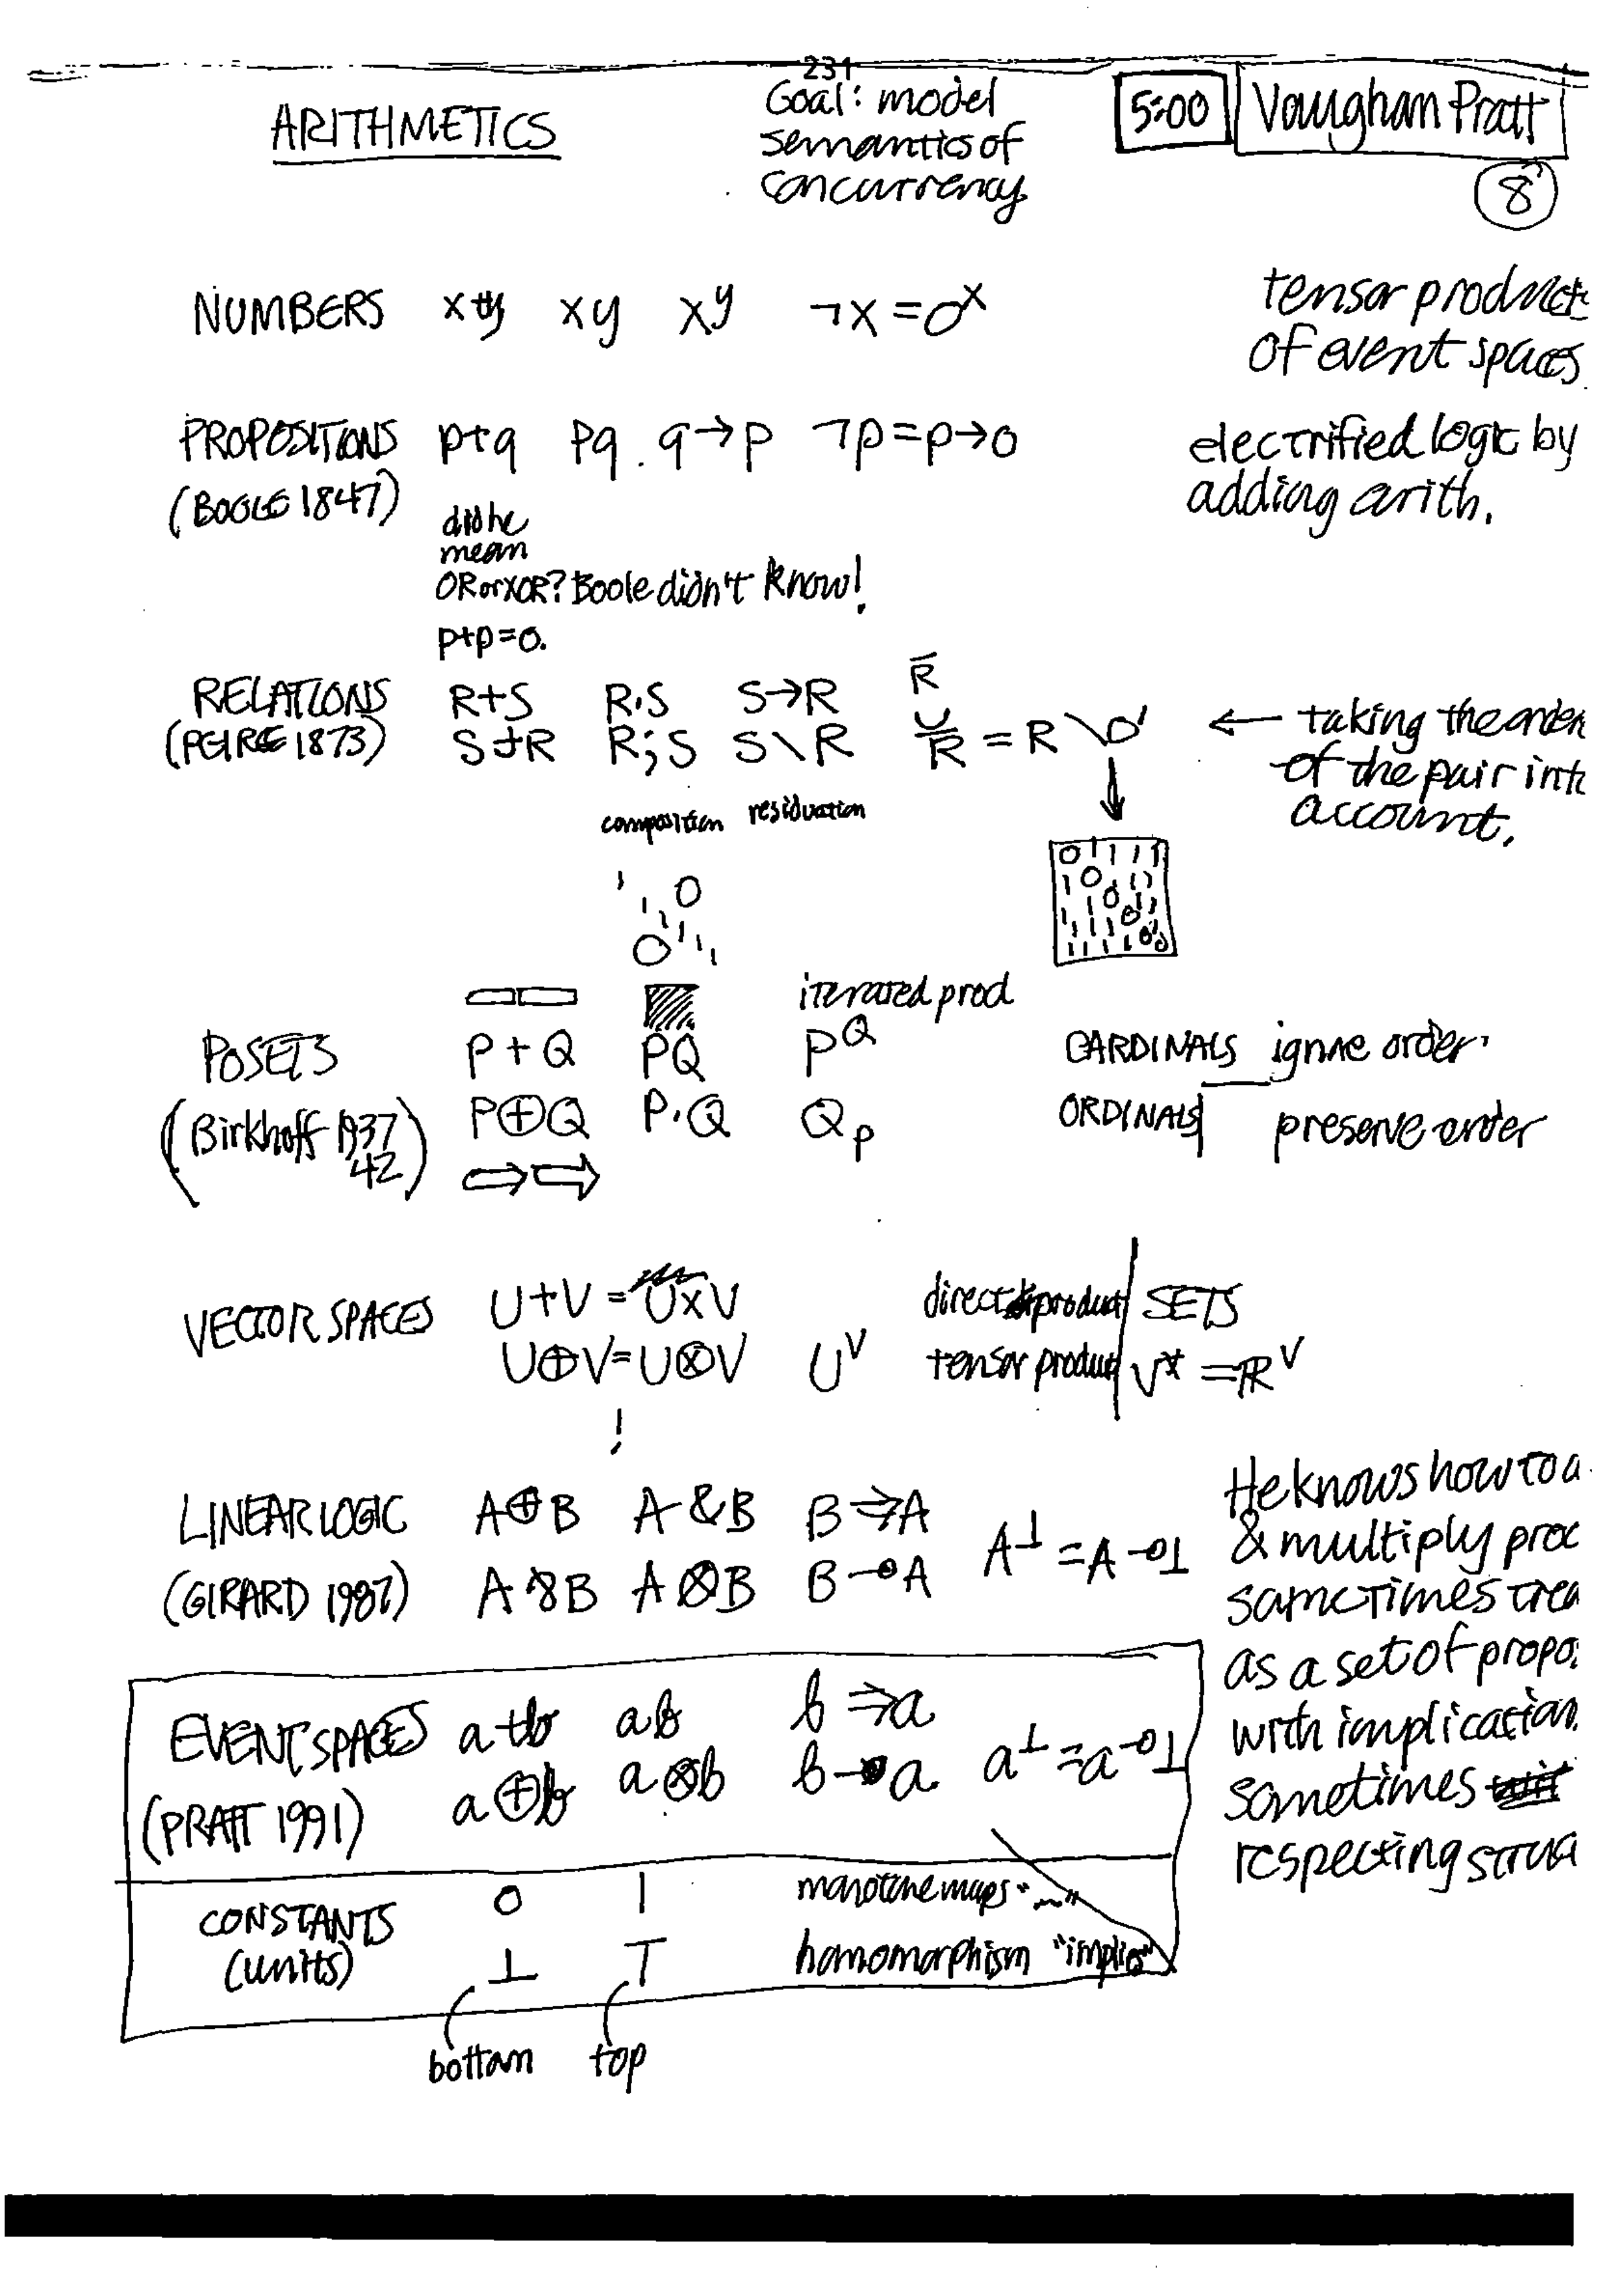 231
ARITHMETICS
Goal: model
semantics of
concurrency
5:00
Vaughan Pratt
8
NUMBERS x+y xy x^y ¬x=0^x
tensor product
of event spaces
PROPOSITIONS p+q pq q→p ¬p=p→0
(BOOLE 1847)
electrified logic by
adding arith.
did he
mean
OR or XOR? Boole didn't know!
p+p=0.
RELATIONS R+S R·S S→R R̄
(PEIRCE 1873) S+R R;S S\R R̆ = R\0'
← taking the order
of the pair into
account.
composition residuation
iterated prod
POSETS P+Q PQ P^Q
(Birkhoff 1937
42) P⊕Q P·Q Q_P
CARDINALS ignore order
ORDINALS preserve order
VECTOR SPACES U+V = U×V direct product SETS
U⊕V=U⊗V U^V tensor product V* = ℝ^V
!
LINEAR LOGIC A⊕B A&B B⇒A
(GIRARD 1987) A⅋B A⊗B B⊸A A^⊥ = A⊸⊥
He knows how to a
& multiply proc
sometimes trea
as a set of propo
with implication
sometimes
respecting struc
EVENT SPACES a+b ab b⇒a
(PRATT 1991) a⊕b a⊗b b⊸a a^⊥=a⊸⊥
CONSTANTS 0 1 monotone maps "~"
(units) ⊥ T homomorphism "implies"
bottom top